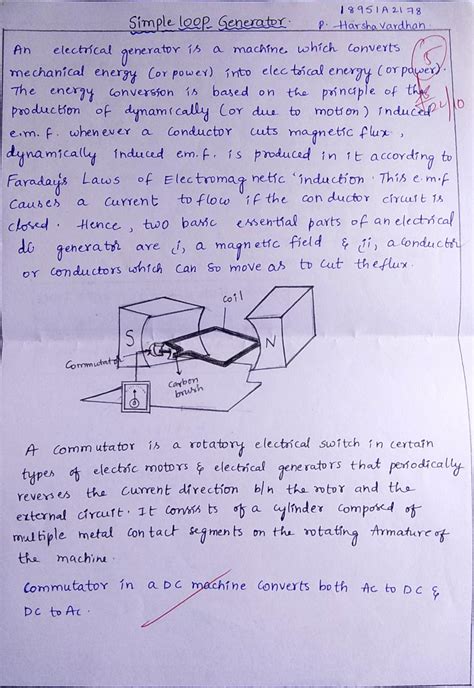 18951A2178
Simple loop Generator.
P. Harsha vardhan.
An electrical generator is a machine which converts
mechanical energy (or power) into electrical energy (or power).
5
The energy conversion is based on the principle of the
production of dynamically (or due to motion) induced
e.m.f. whenever a conductor cuts magnetic flux,
dynamically induced em.f. is produced in it according to
Faraday's Laws of Electromagnetic induction. This e.m.f
causes a current to flow if the conductor circuit is
closed. Hence, two basic essential parts of an electrical
dc generator are i, a magnetic field & ii, a conductor
or conductors which can so move as to cut the flux.
coil
S
N
Commutator
carbon
brush
A commutator is a rotatory electrical switch in certain
types of electric motors & electrical generators that periodically
reverses the current direction b/n the rotor and the
external circuit. It consists of a cylinder composed of
multiple metal contact segments on the rotating Armature of
the machine.
Commutator in a DC machine converts both AC to DC &
DC to AC.